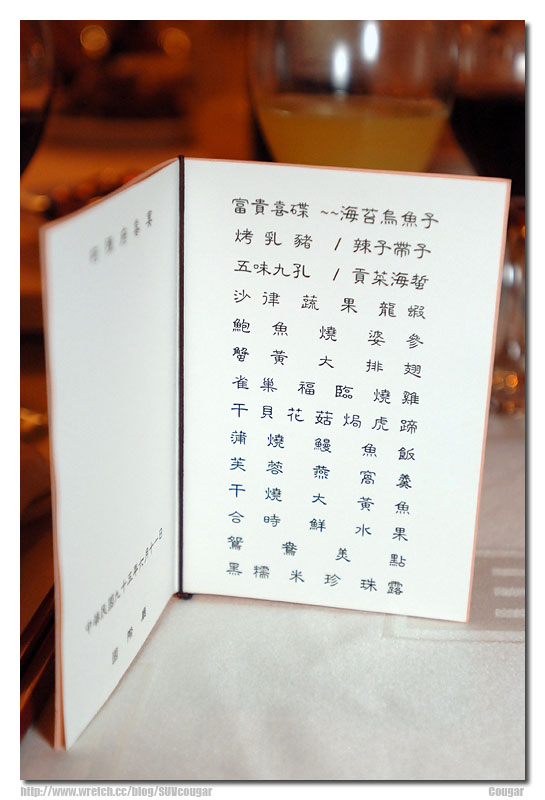 富貴喜碟 ~~海苔烏魚子
烤乳豬 / 辣子帶子
五味九孔 / 貢菜海蜇
沙律蔬果龍蝦
鮑魚燒婆參
蟹黃大排翅
雀巢福臨燒雞
干貝花菇焗虎蹄
蒲燒鰻魚飯
芙蓉燕窩羹
干燒大黃魚
合時鮮水果
鴛鴦美點
黑糯米珍珠露
喜宴
中華民國九十五年六月十一日
國際廳
http://www.wretch.cc/blog/SUVcougar
Cougar